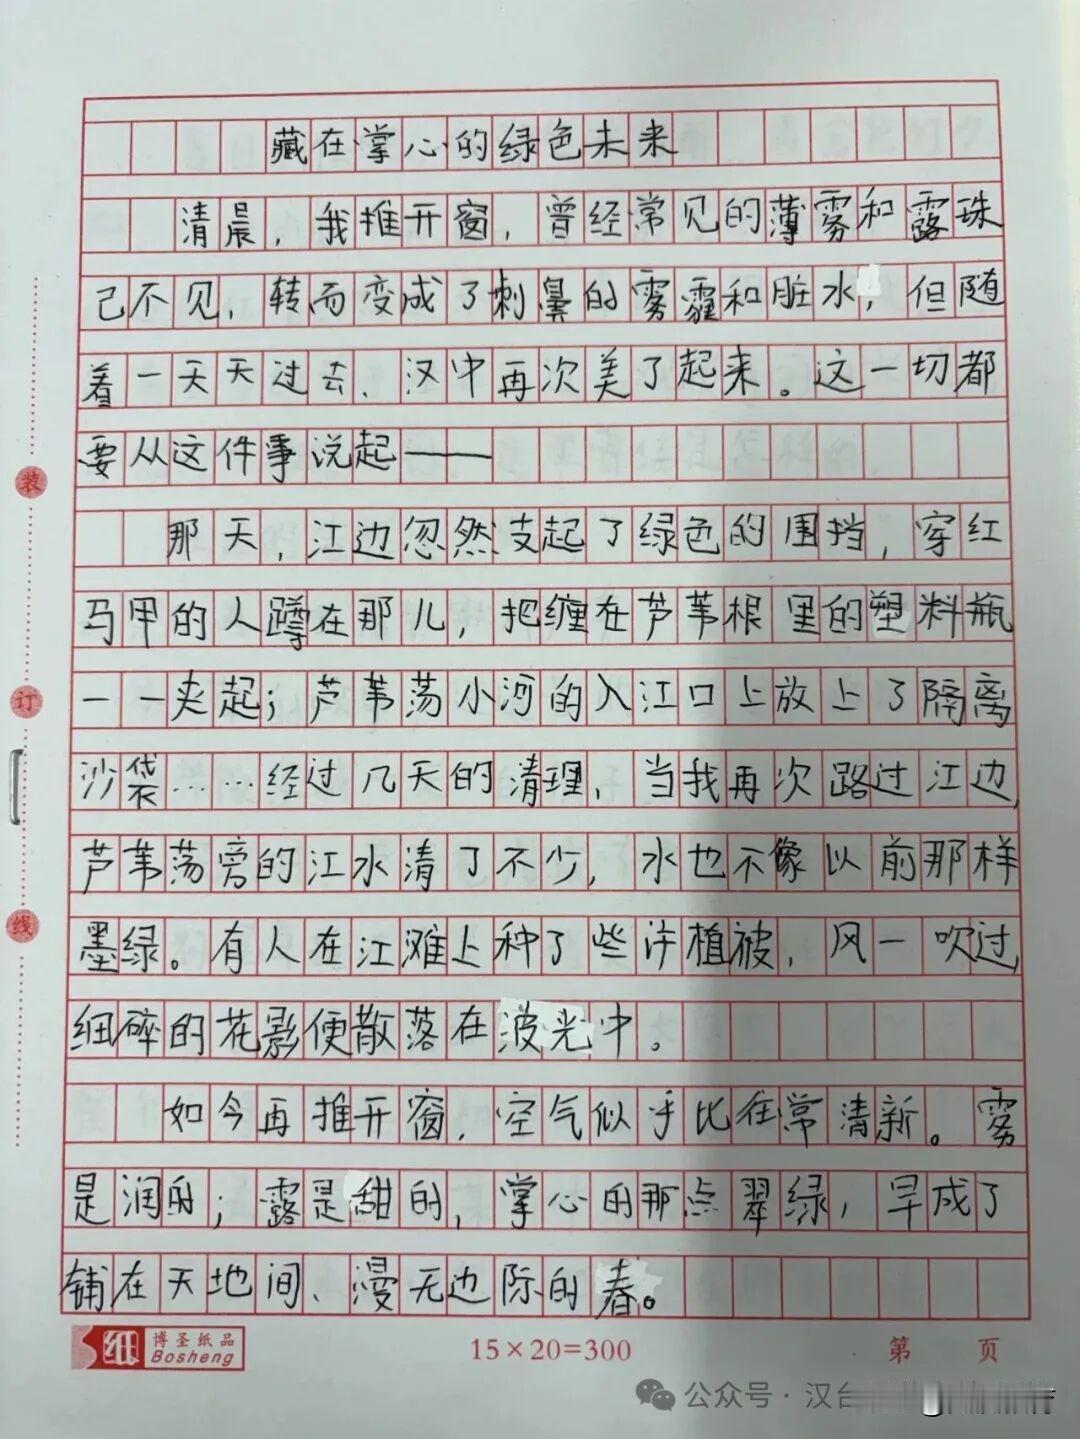 藏在掌心的绿色未来
清晨，我推开窗，曾经常见的薄雾和露珠
己不见，转而变成了刺鼻的雾霾和脏水，但随
着一天天过去、汉中再次美了起来。这一切都
要从这件事说起——
那天，江边忽然支起了绿色的围挡，穿红
马甲的人蹲在那儿，把缠在芦苇根里的塑料瓶
一一夹起；芦苇荡小河的入江口上放上了隔离
沙袋……经过几天的清理、当我再次路过江边，
芦苇荡旁的江水清了不少，水也不像以前那样
墨绿。有人在江滩上种了些许植被，风一吹过，
细碎的花影便散落在波光中。
如今再推开窗，空气似乎比往常清新。雾
是润的；露是甜的，掌心的那点翠绿，早成了
铺在天地间、漫无边际的春。
装
订
线
纸 博圣纸品
Bosheng
15×20=300
第 页
公众号·汉台